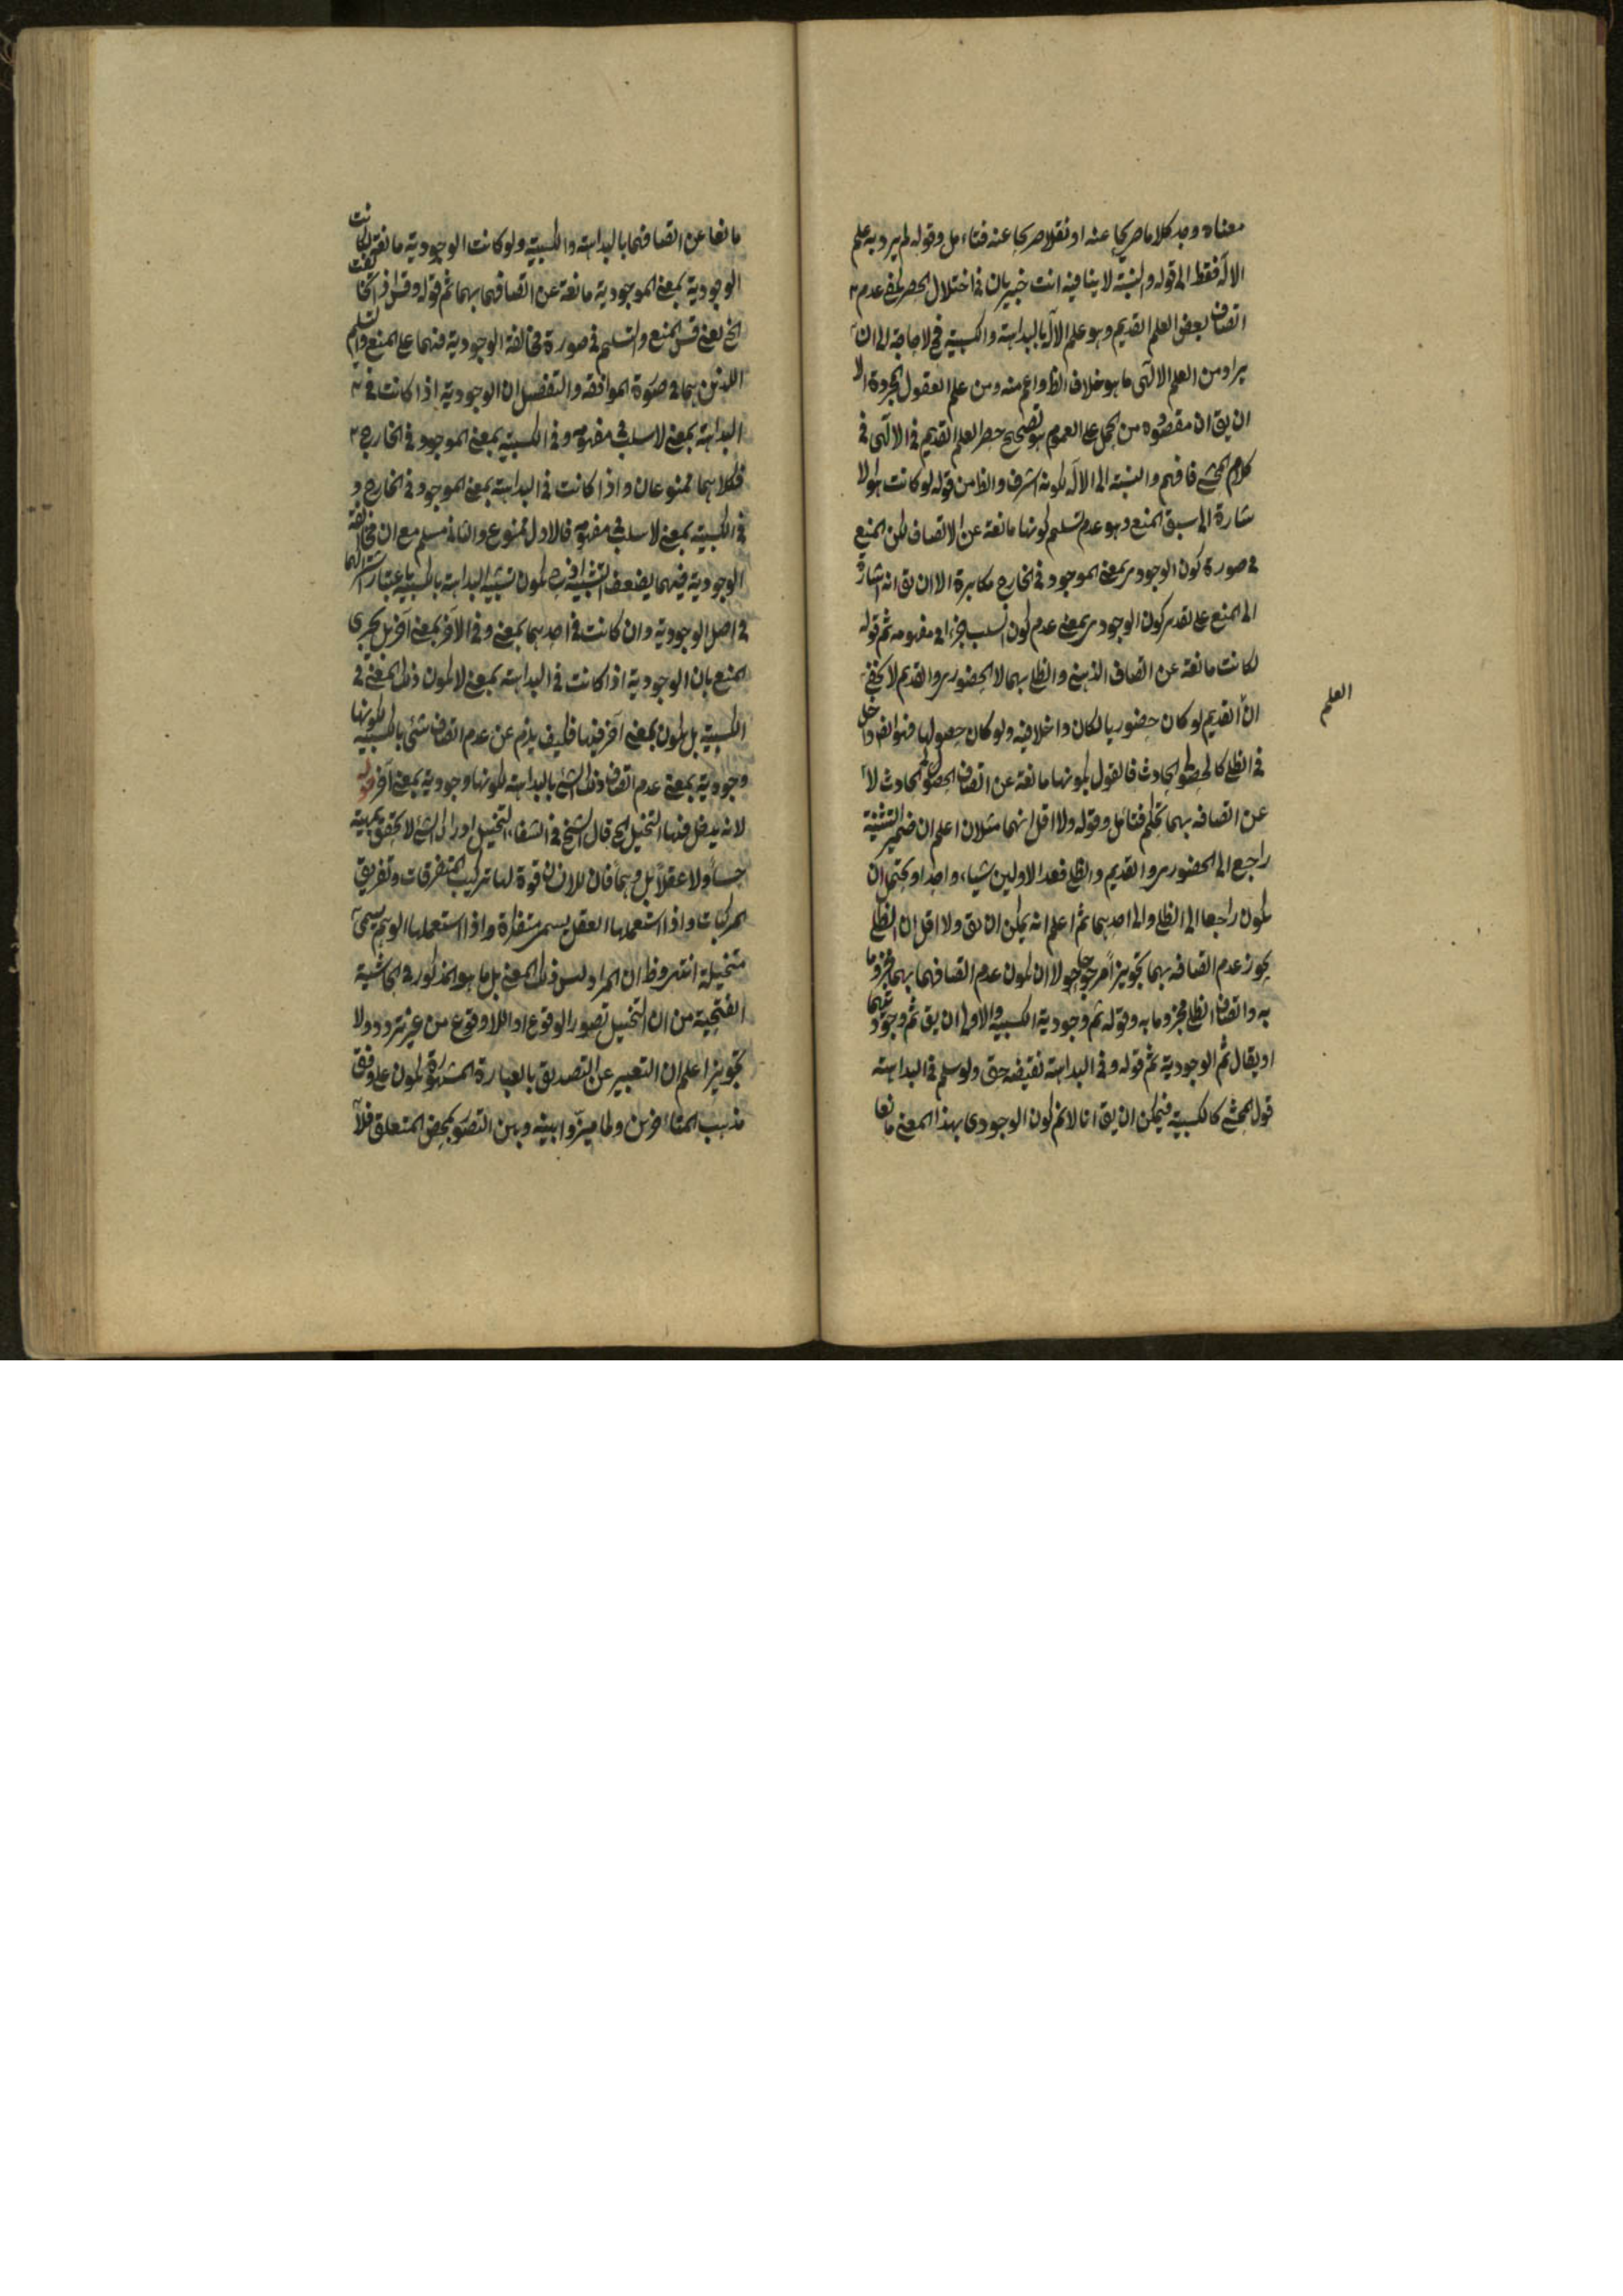 معناه وجد كلاما صريحا عنه او نقلا صريحا عنه فتاءمل وقوله لم يرد به علم
الاله فقط الى قوله والنسبة لا ينافيه انت خبير بان في اختلال الحصر يكفى عدم
اتصاف بعض العلم القديم وهو علم الاله بالبداهة والكسبية فح لا حاجة الى ان
يراد من العلم الالهى ما هو خلاف الظ واعم منه ومن علم العقول المجردة الا
ان يق ان مقصوده من الحمل على العموم هو تصحيح حصر العلم القديم في الالهى في
كلام المحشي فافهم والنسبة الى الاله لكونه اشرف والظ من قوله لو كانت هو الا
شارة الى سبق المنع وهو عدم تسليم كونها مانعة عن الاتصاف لكن المنع
في صورة كون الوجودى بمعنى الموجود في الخارج مكابرة الا ان يق انه اشارة
الى المنع على تقدير كون الوجودى بمعنى عدم كون السلب جزءا في مفهومه ثم قوله
لكانت مانعة عن اتصاف الذهنى والظلى بهما لا الحضورى والقديم لا يخفى
ان القديم لو كان حضوريا لكان داخلا فيه ولو كان حصوليا فهو ايضا داخل
العلم
في الظلى كالحصولى الحادث فالقول بكونها مانعة عن اتصاف الحصولى الحادث لا
عن اتصافه بهما تحكم فتاءمل وقوله ولا اقل انهما مثلان اعلم ان ضمير التثنية
راجع الى الحضورى والقديم والظلى فعد الاولين شيئا واحدا ويحتمل ان
يكون راجعا الى الظلى والى احدهما ثم اعلم انه يمكن ان يق ولا اقل ان الظلى
يجوز عدم اتصافه بهما تجويزا مرجوحا ولا ان يكون عدم اتصافهما بهما مجزوما
به واتصاف الظلى مجزوما به وقوله ثم وجودية الكسبية والاولى ان يق ثم وجوديتهما
او يقال ثم الوجودية ثم قوله وفي البداهة نقيضه حق ولو سلم في البداهة
قول المحشي كالكسبية فيمكن ان يق انا لا نم كون الوجودى بهذا المعنى مانعا
مانعا عن اتصافهما بالبداهة والكسبية ولو كانت الوجودية مانعة لكانت
الوجودية بمعنى الموجودية مانعة عن اتصافهما بهما ثم قوله وقس اذ اختلفت
الخ يعنى قس المنع والتسليم في صورة مخالفة الوجودية فيهما على المنع والتسليم
اللذين هما في صورة الموافقة والتفصيل ان الوجودية اذا كانت في
البداهة بمعنى لا سلب في مفهومه وفي الكسبية بمعنى الموجود في الخارج
فكلاهما ممنوعان واذا كانت في البداهة بمعنى الموجود في الخارج و
في الكسبية بمعنى لا سلب في مفهومه فالاول ممنوع والثانى مسلم مع ان مخالفة
الوجودية فيهما يضعف التشبيه اذ ح يكون تشبيه البداهة بالكسبية باعتبار اشتراكهما
في اصل الوجودية وان كانت في احدهما بمعنى وفي الآخر بمعنى آخر بل يجرى
المنع بان الوجودية اذا كانت في البداهة بمعنى لا يكون ذلك المعنى في
الكسبية بل يكون بمعنى آخر فيها فكيف يلزم عن عدم اتصاف شئ بالكسبية لكونها
وجودية بمعنى عدم اتصاف ذلك الشئ بالبداهة لكونها وجودية بمعنى آخر قوله
لانه يدخل فيها التخييل الخ قال الشيخ في الشفاء التخييل ادراك الشئ لا يتحقق بمهية
حسا ولا عقلا بل وهما فان للانسان قوة لها تركيب المتفرقات وتفريق
المركبات واذا استعملها العقل يسمى متفكرة واذا استعملها الوهم يسمى
متخيلة انتهى وظ ان المراد ليس ذلك المعنى بل ما هو المذكور في الحاشية
الفتحية من ان التخييل تصور الوقوع او اللاوقوع من غير تردد ولا
تجويز اعلم ان التعبير عن التصديق بالعبارة المشهورة يكون على وفق
مذهب المتاءخرين ولما ميزوا بينه وبين التصور بمحض المتعلق فلا